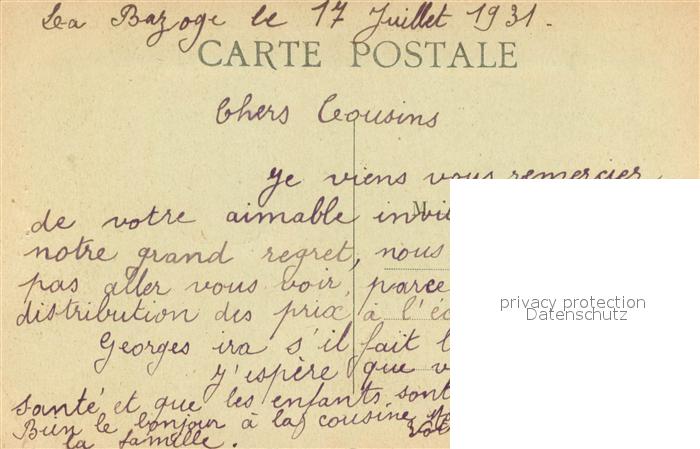 La Bazoge le 17 Juillet 1931.
CARTE POSTALE
Chers Cousins
Je viens vous remercier
de votre aimable invi
notre grand regret, nous
pas aller vous voir, parce
distribution des prix à l'éc
privacy protection
Datenschutz
Georges ira s'il fait
J'espère que v
santé et que les enfants sont
Bien le bonjour à la cousine
la famille.